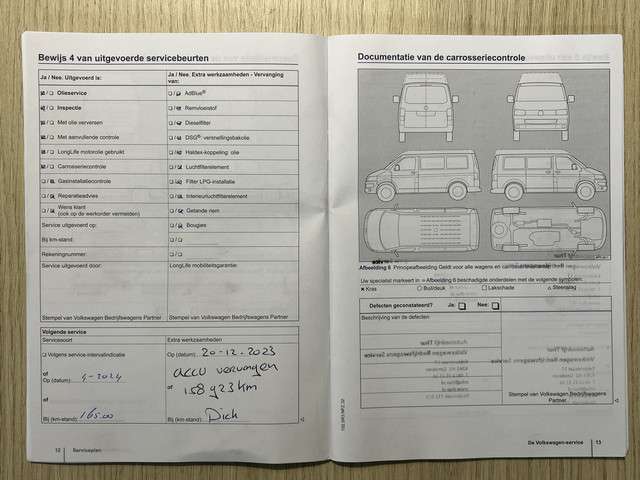 Bewijs 4 van uitgevoerde servicebeurten
Ja / Nee. Uitgevoerd is:
Ja / Nee. Extra werkzaamheden - Vervanging van:
❏ / ❏ Olieservice
❏ / ❏ AdBlue®
❏ / ❏ Inspectie
❏ / ❏ Remvloeistof
❏ / ❏ Met olie verversen
❏ / ❏ Dieselfilter
❏ / ❏ Met aanvullende controle
❏ / ❏ DSG®: versnellingsbakolie
❏ / ❏ LongLife motorolie gebruikt
❏ / ❏ Haldex-koppeling: olie
❏ / ❏ Carrosseriecontrole
❏ / ❏ Luchtfilterelement
❏ / ❏ Gasinstallatiecontrole
❏ / ❏ Filter LPG-installatie
❏ / ❏ Reparatieadvies
❏ / ❏ Interieurluchtfilterelement
❏ / ❏ Wens klant
(ook op de werkorder vermelden)
❏ / ❏ Getande riem
Service uitgevoerd op:
❏ / ❏ Bougies
Bij km-stand:
❏ / ❏
Rekeningnummer:
❏ / ❏
Service uitgevoerd door:
LongLife mobiliteitsgarantie:
Stempel van Volkswagen Bedrijfswagens Partner
Stempel van Volkswagen Bedrijfswagens Partner
Volgende service
Servicesoort
Extra werkzaamheden
❏ Volgens service-intervalindicatie
Op (datum): 20-12.2023
of
accu vervangen
Op (datum): 4-2024
of 158923 km
of
Bij (km-stand): 165.00
Bij (km-stand): Dick
12 Serviceplan
Documentatie van de carrosseriecontrole
Afbeelding 6 Principeafbeelding Geldt voor alle wagens en
Uw specialist markeert in ⇒ Afbeelding 6 beschadigde onderdelen met de volgende symbolen:
× Kras
○ Buil/deuk
□ Lakschade
△ Steenslag
Defecten geconstateerd? Ja: ❏ Nee: ❏
Beschrijving van de defecten:
Stempel van Volkswagen Bedrijfswagens Partner.
De Volkswagen-service 13